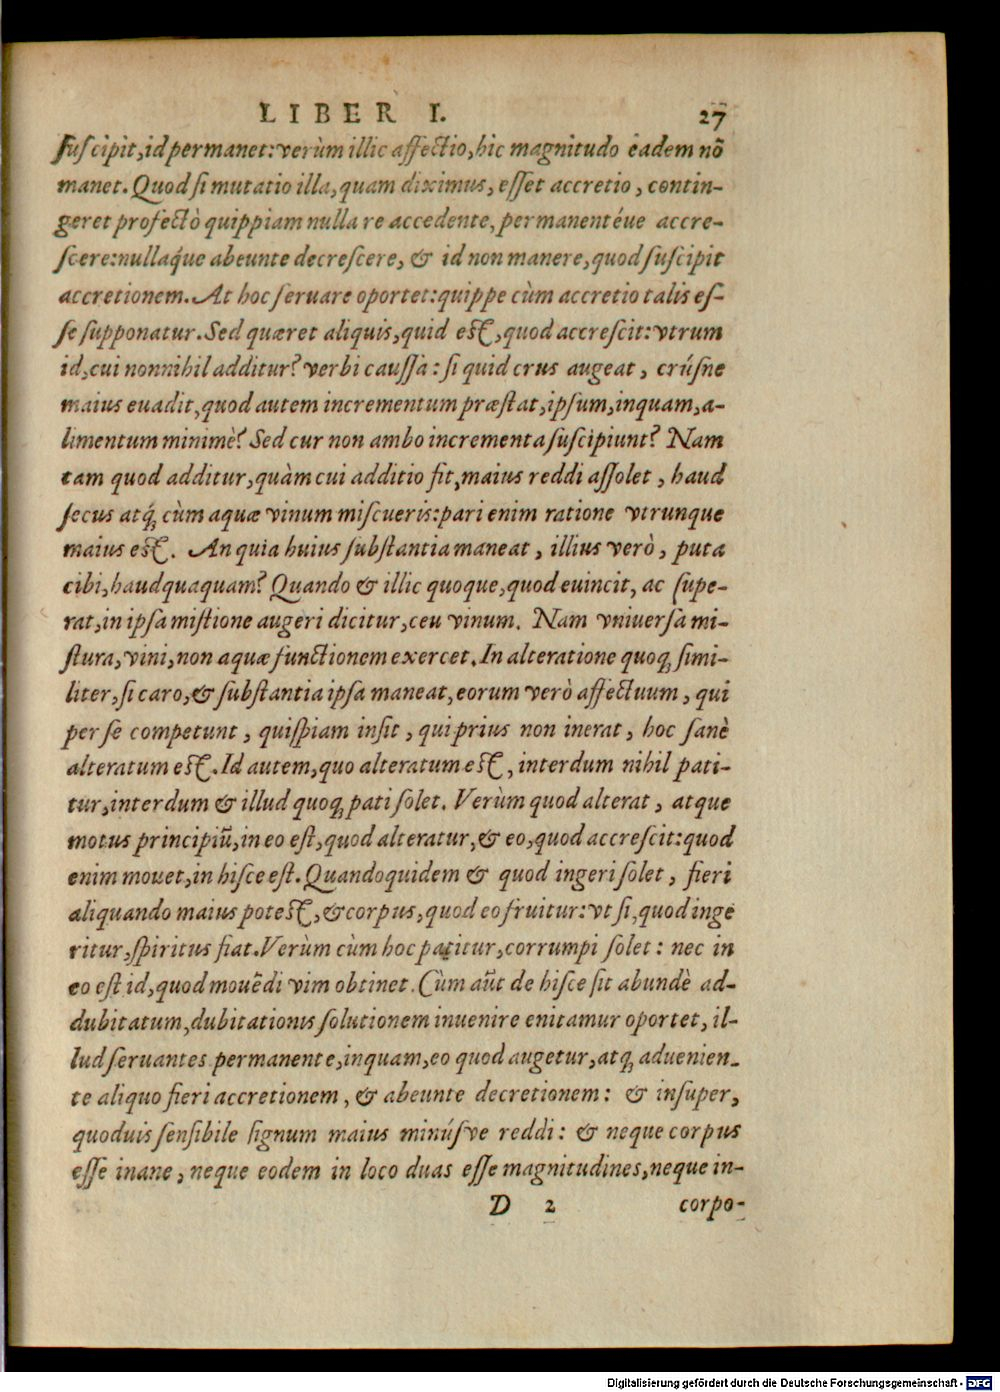 LIBER I. 27
ſuſcipit, id permanet: verùm illic affectio, hic magnitudo eadem nõ
manet. Quod ſi mutatio illa, quam diximus, eſſet accretio, contin-
geret profectò quippiam nulla re accedente, permanentéue accre-
ſcere: nullaq́ue abeunte decreſcere, & id non manere, quod ſuſcipit
accretionem. At hoc ſeruare oportet: quippe cùm accretio talis eſ-
ſe ſupponatur. Sed quæret aliquis, quid eſt, quod accreſcit: vtrum
id, cui nonnihil additur? verbi cauſſa: ſi quid crus augeat, crúſne
maius euadit, quod autem incrementum præſtat, ipſum, inquam, a-
limentum minimè? Sed cur non ambo incrementa ſuſcipiunt? Nam
tam quod additur, quàm cui additio fit, maius reddi aſſolet, haud
ſecus atq; cùm aquæ vinum miſcueris: pari enim ratione vtrunque
maius eſt. An quia huius ſubſtantia maneat, illius verò, puta
cibi, haudquaquam? Quando & illic quoque, quod euincit, ac ſupe-
rat, in ipſa miſtione augeri dicitur, ceu vinum. Nam vniuerſa mi-
ſtura, vini, non aquæ functionem exercet. In alteratione quoq; ſimi-
liter, ſi caro, & ſubſtantia ipſa maneat, eorum verò affectuum, qui
per ſe competunt, quiſpiam inſit, qui prius non inerat, hoc ſanè
alteratum eſt. Id autem, quo alteratum eſt, interdum nihil pati-
tur, interdum & illud quoq; pati ſolet. Verùm quod alterat, atque
motus principiũ, in eo eſt, quod alteratur, & eo, quod accreſcit: quod
enim mouet, in hiſce eſt. Quandoquidem & quod ingeri ſolet, fieri
aliquando maius poteſt, & corpus, quod eo fruitur: vt ſi, quod inge
ritur, ſpiritus fiat. Verùm cùm hoc patitur, corrumpi ſolet: nec in
eo eſt id, quod mouẽdi vim obtinet. Cùm aũt de hiſce ſit abundè ad-
dubitatum, dubitationis ſolutionem inuenire enitamur oportet, il-
lud ſeruantes permanente, inquam, eo quod augetur, atq; aduenien-
te aliquo fieri accretionem, & abeunte decretionem: & inſuper,
quoduis ſenſibile ſignum maius minúſve reddi: & neque corpus
eſſe inane, neque eodem in loco duas eſſe magnitudines, neque in-
D 2 corpo-
Digitalisierung gefördert durch die Deutsche Forschungsgemeinschaft - DFG